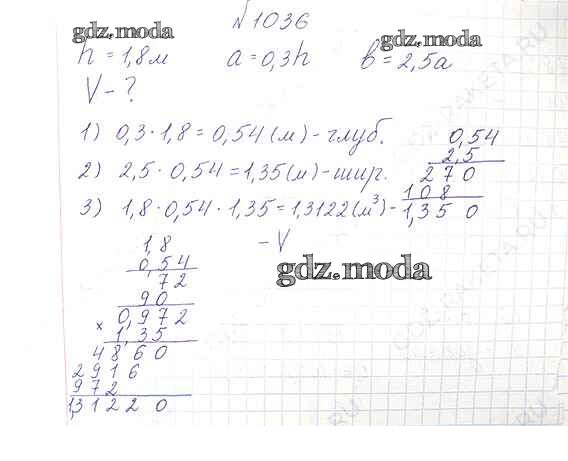 №1036
gdz.moda
gdz.moda
h = 1,8м a = 0,3h b = 2,5a
V - ?
1) 0,3 · 1,8 = 0,54 (м) - глуб.
2) 2,5 · 0,54 = 1,35 (м) - шир.
3) 1,8 · 0,54 · 1,35 = 1,3122 (м³) -
- V
0,54
2,5
270
108
1,350
gdz.moda
1,8
0,54
72
90
0,972
× 1,35
4860
2916
972
1,31220